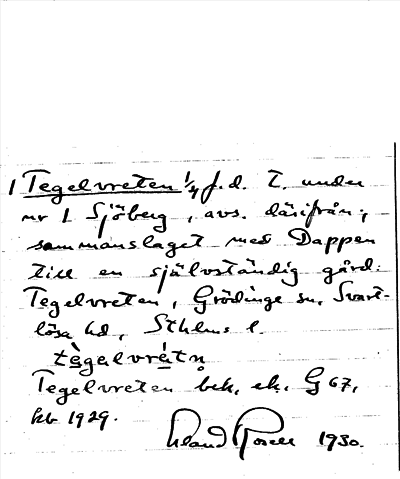 1 Tegelvreten 1/4 f.d. t. under
nr 1 Sjöberg, avs. därifrån;
sammanslaget med Dappen
till en självständig gård:
Tegelvreten, Grödinge sn, Svart-
lösa hd, Sthlms l.
tègelvrétn̥
Tegelvreten bek. ek. G 67,
kb 1929.
1930.